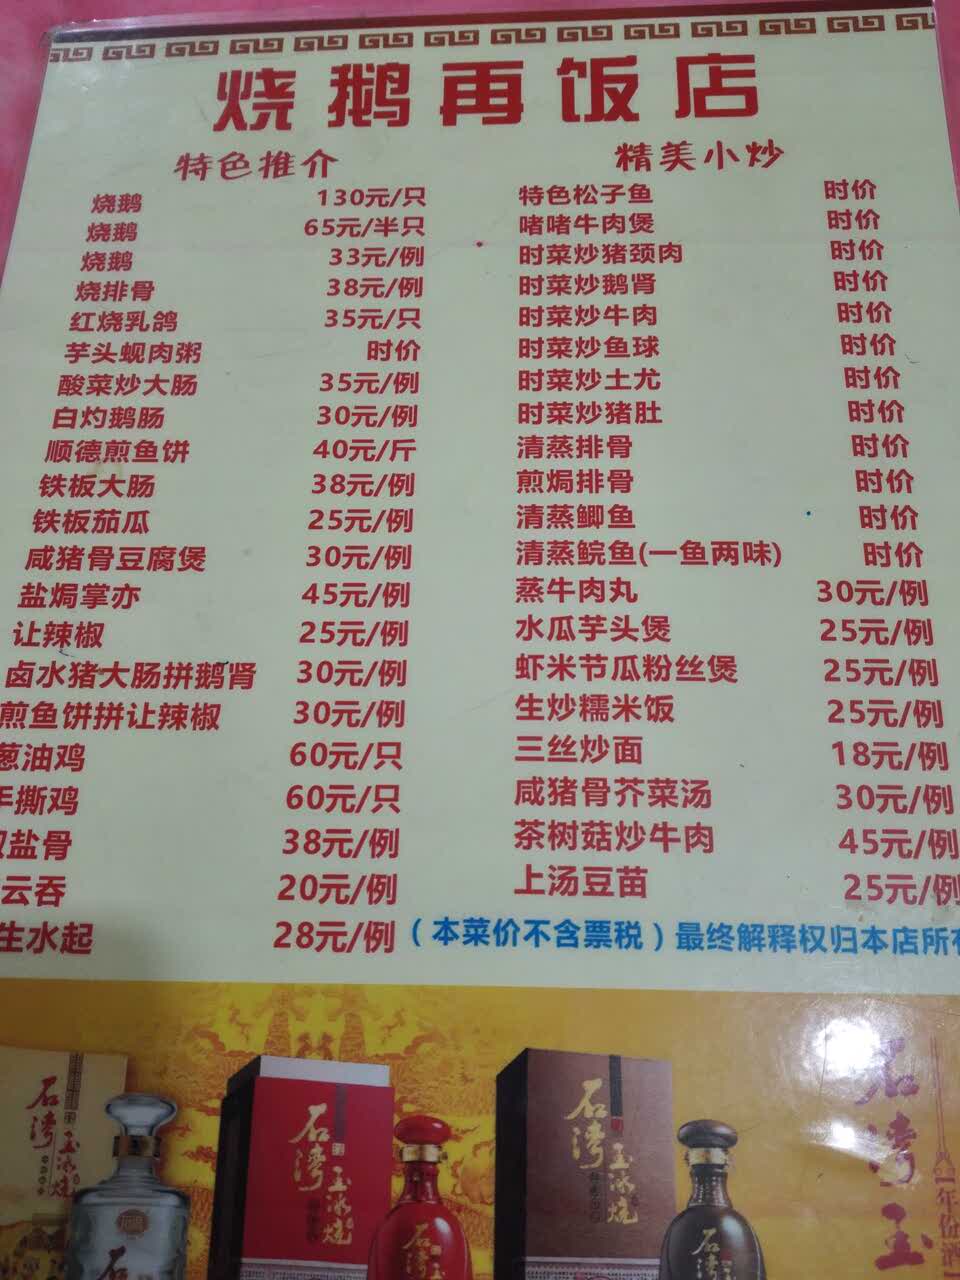 烧鹅再饭店
特色推介
烧鹅 130元/只
烧鹅 65元/半只
烧鹅 33元/例
烧排骨 38元/例
红烧乳鸽 35元/只
芋头蚬肉粥 时价
酸菜炒大肠 35元/例
白灼鹅肠 30元/例
顺德煎鱼饼 40元/斤
铁板大肠 38元/例
铁板茄瓜 25元/例
咸猪骨豆腐煲 30元/例
盐焗掌亦 45元/例
让辣椒 25元/例
卤水猪大肠拼鹅肾 30元/例
煎鱼饼拼让辣椒 30元/例
葱油鸡 60元/只
手撕鸡 60元/只
盐骨 38元/例
云吞 20元/例
生水起 28元/例
精美小炒
特色松子鱼 时价
啫啫牛肉煲 时价
时菜炒猪颈肉 时价
时菜炒鹅肾 时价
时菜炒牛肉 时价
时菜炒鱼球 时价
时菜炒土尤 时价
时菜炒猪肚 时价
清蒸排骨 时价
煎焗排骨 时价
清蒸鲫鱼 时价
清蒸鲩鱼(一鱼两味) 时价
蒸牛肉丸 30元/例
水瓜芋头煲 25元/例
虾米节瓜粉丝煲 25元/例
生炒糯米饭 25元/例
三丝炒面 18元/例
咸猪骨芥菜汤 30元/例
茶树菇炒牛肉 45元/例
上汤豆苗 25元/例
(本菜价不含票税)最终解释权归本店所
石湾玉冰烧
石湾玉冰烧
石湾玉冰烧
石湾
石湾
石湾玉
年份酒